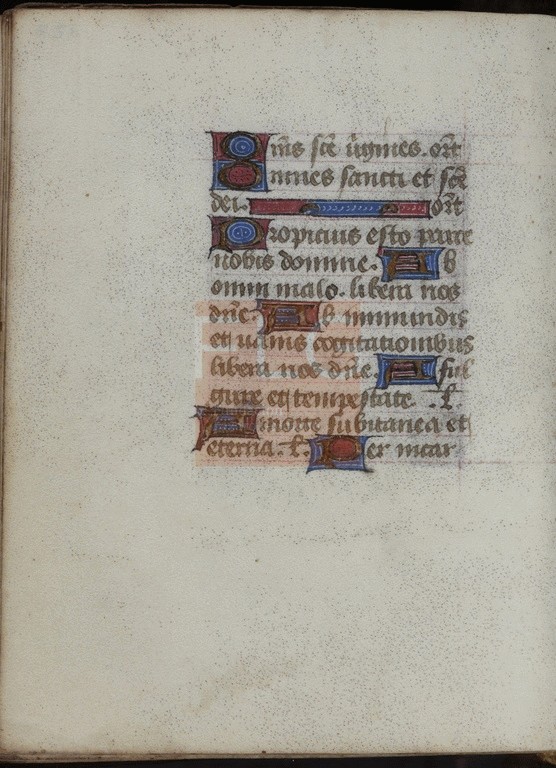 Oms sce ūgines. ort
Omnes sancti et sce
dei. ort
Propicius esto parce
nobis domine. Ab
omni malo. libera nos
dn̄e. Ab inmundis
et uanis cogitationibus
libera nos dn̄e. A ful
gure et tempestate. L.
A morte subitanea et
eterna. L. Per incar